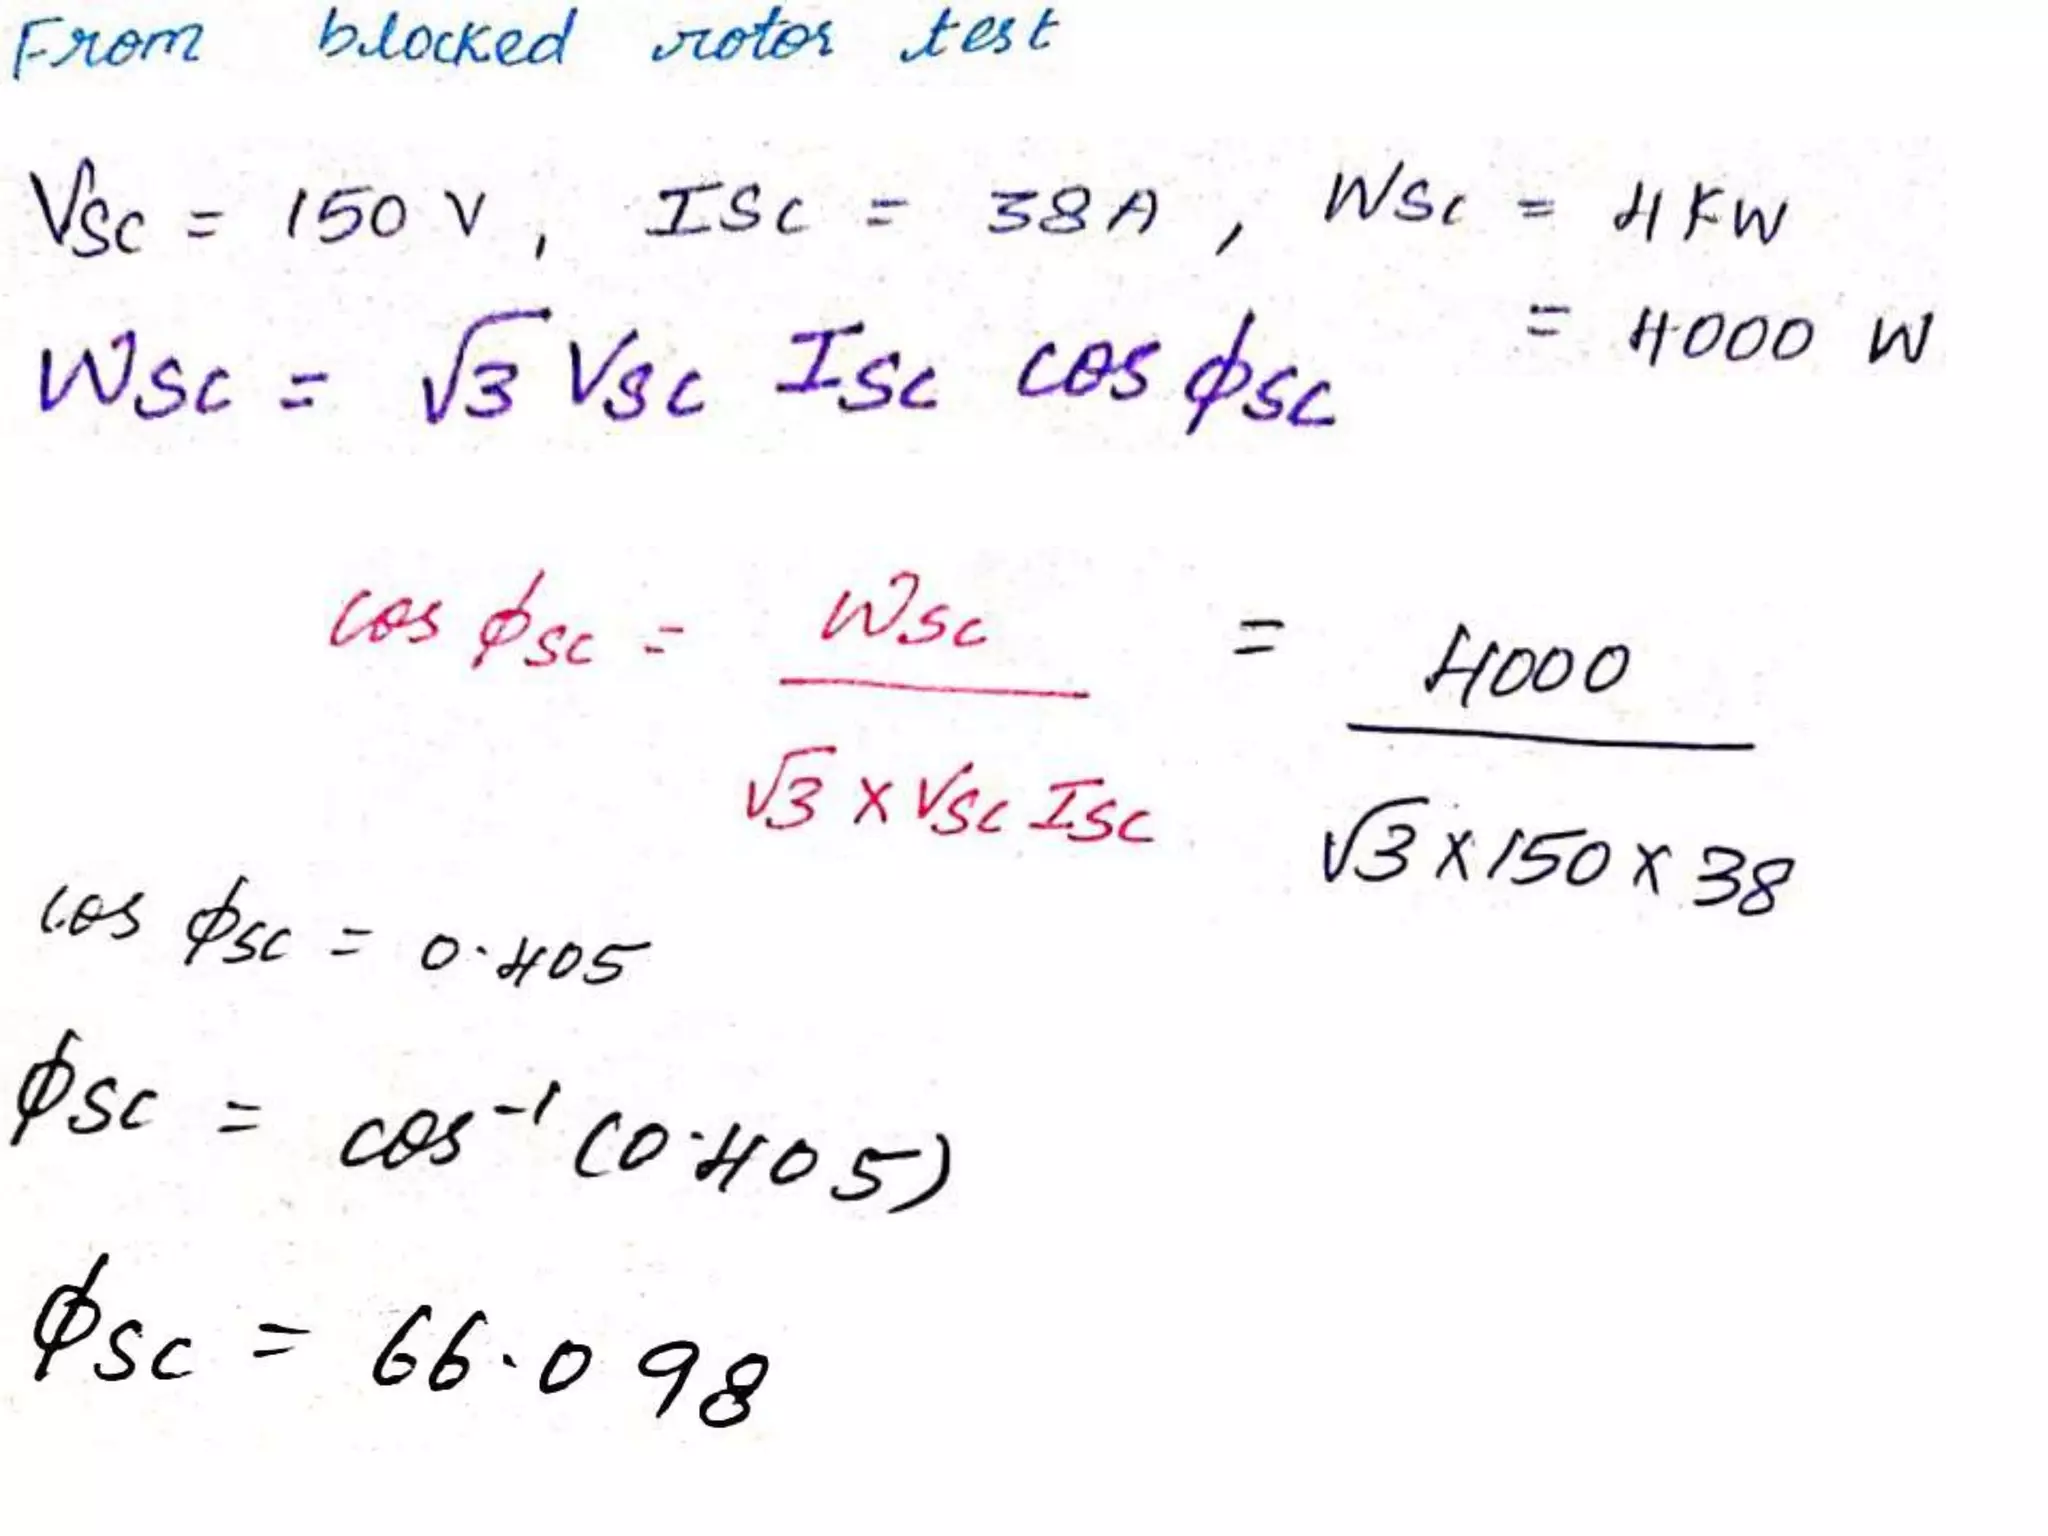 From blocked rotor test
VSC = 150 V, ISC = 38A, WSC = 4KW
= 4000 W
WSC = √3 VSC ISC cos ϕSC
cos ϕSC = WSC / √3 × VSC ISC = 4000 / √3 × 150 × 38
cos ϕSC = 0.405
ϕSC = cos⁻¹ (0.405)
ϕSC = 66.098